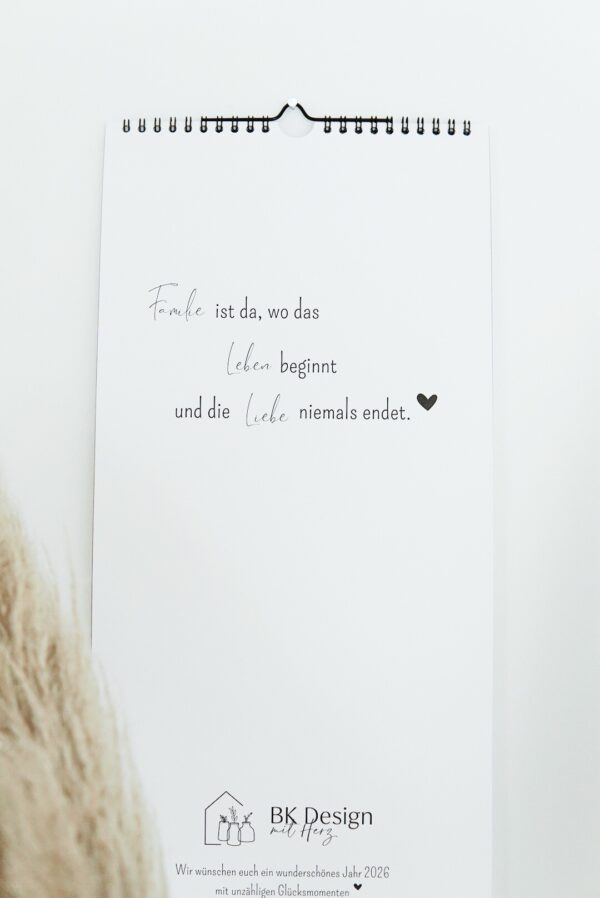 Familie ist da, wo das
Leben beginnt
und die Liebe niemals endet.
BK Design
mit Herz
Wir wünschen euch ein wunderschönes Jahr 2026
mit unzähligen Glücksmomenten